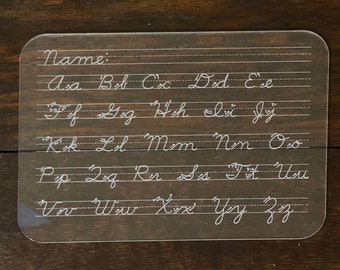 Name:
Aa Bb Cc Dd Ee
Ff Gg Hh Ii Jj
Kk Ll Mm Nn Oo
Pp Qq Rr Ss Tt Uu
Vv Ww Xx Yy Zz